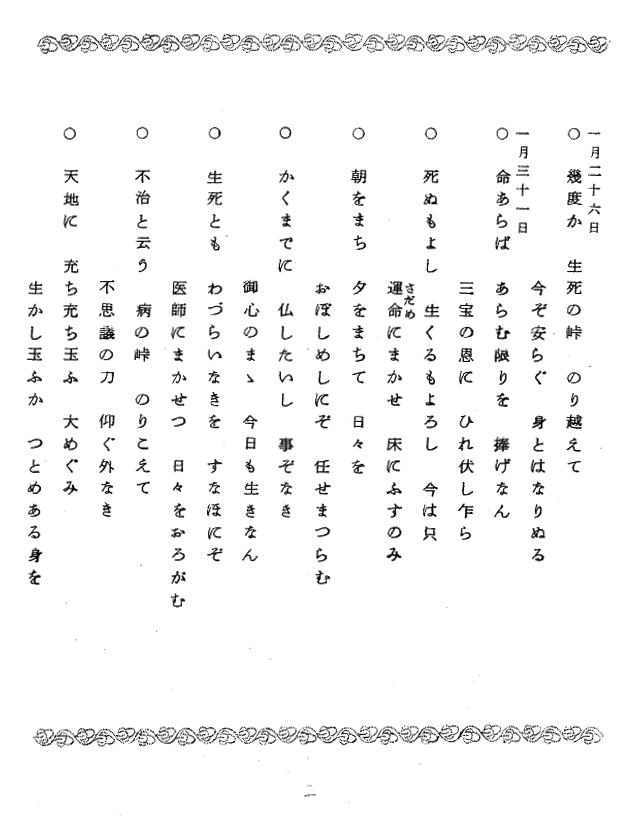 一月二十六日
○ 幾度か 生死の峠 のり越えて
今ぞ安らぐ 身とはなりぬる
一月三十一日
○ 命あらば あらむ限りを 捧げなん
三宝の恩に ひれ伏し乍ら
○ 死ぬもよし 生くるもよろし 今は只
運命にまかせ 床にふすのみ
さだめ
○ 朝をまち 夕をまちて 日々を
おぼしめしにぞ 任せまつらむ
○ かくまでに 仏したいし 事ぞなき
御心のまゝ 今日も生きなん
○ 生死とも わづらいなきを すなほにぞ
医師にまかせつ 日々をおろがむ
○ 不治と云う 病の峠 のりこえて
不思議の刀 仰ぐ外なき
○ 天地に 充ち充ち玉ふ 大めぐみ
生かし玉ふか つとめある身を
二